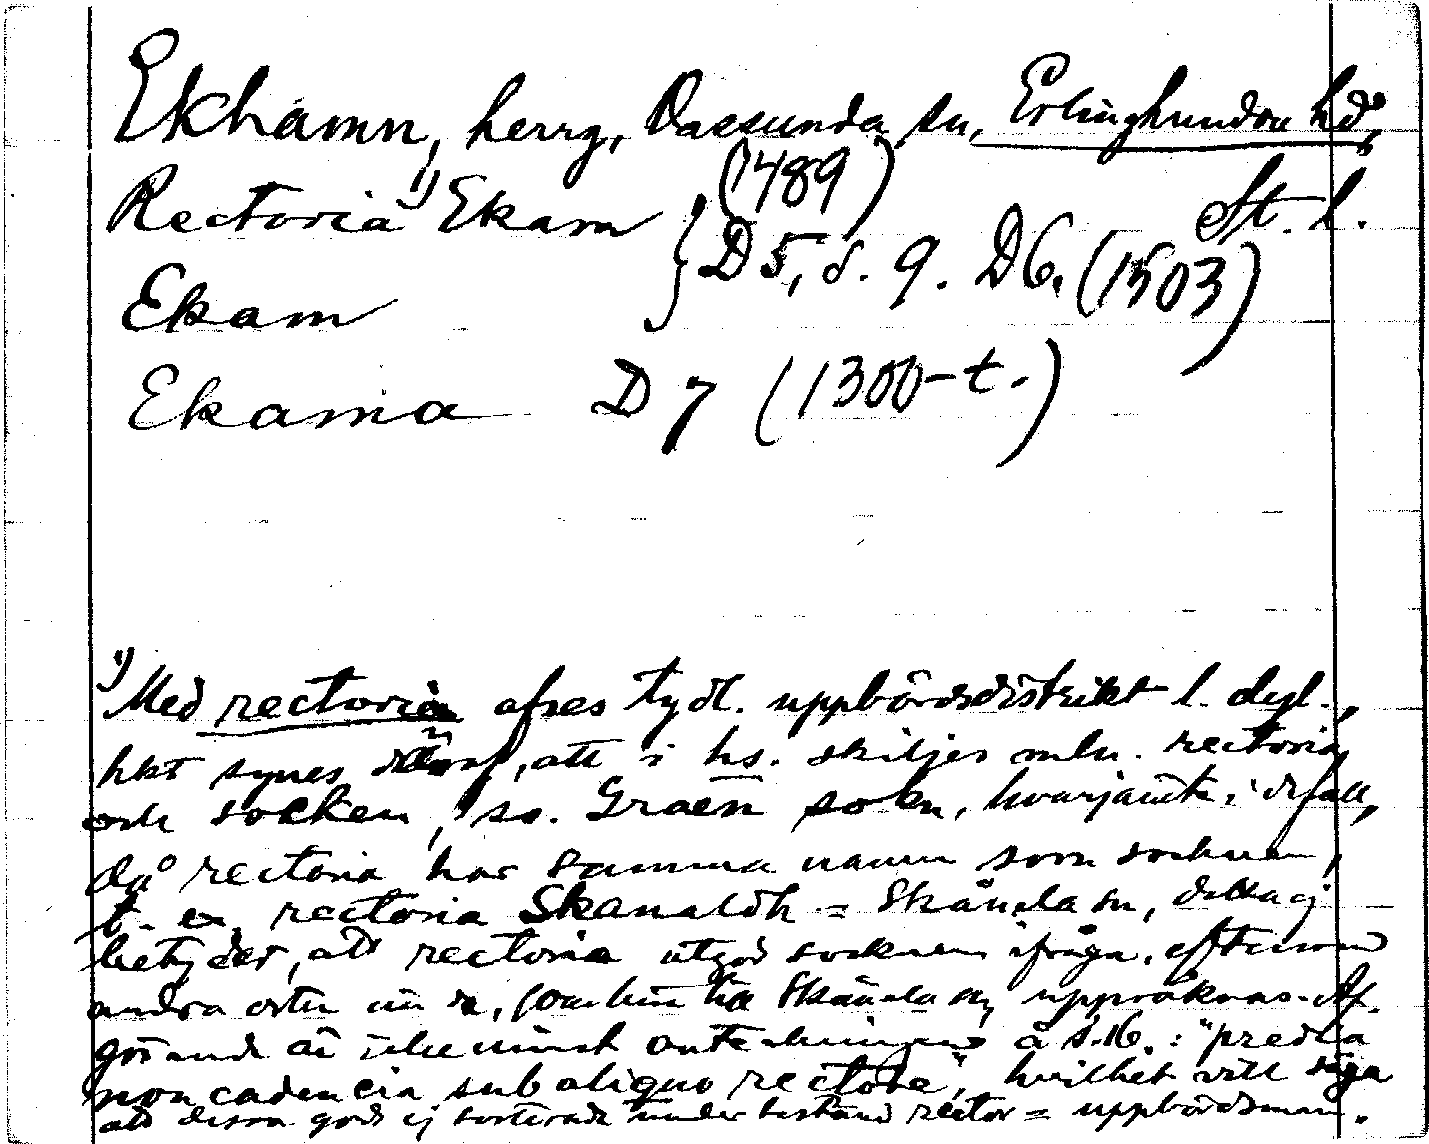 Ekhamn, herrg, Daesunda sn, Erlinghundra hd,
Rectoria ¹) Ekam, (1489) St. l.
Ekam } D 5, s. 9. D 6. (1503)
Ekama D 7 (1300-t.)
¹) Med rectoria afses tydl. uppbördsdistrikt l. dyl.,
hkt synes däraf, att i hs. skiljes mln. rectoria
och socken, so. Graen sokn, hvarjämte, i de fall,
då rectoria har samma namn som socknen,
t. ex. rectoria Skanaldh = Skånela sn, detta ej
betyder, att rectoria utgör socknen ifråga, eftersom
andra orter än de, som höra till Skånela sn, uppräknas. Af-
görande är icke minst anteckningen å s. 16. : "predia
non cadencia sub aliquo rectore", hvilket vill säga
att dessa gods ej sorterade under bestämd rector = uppbördsman.